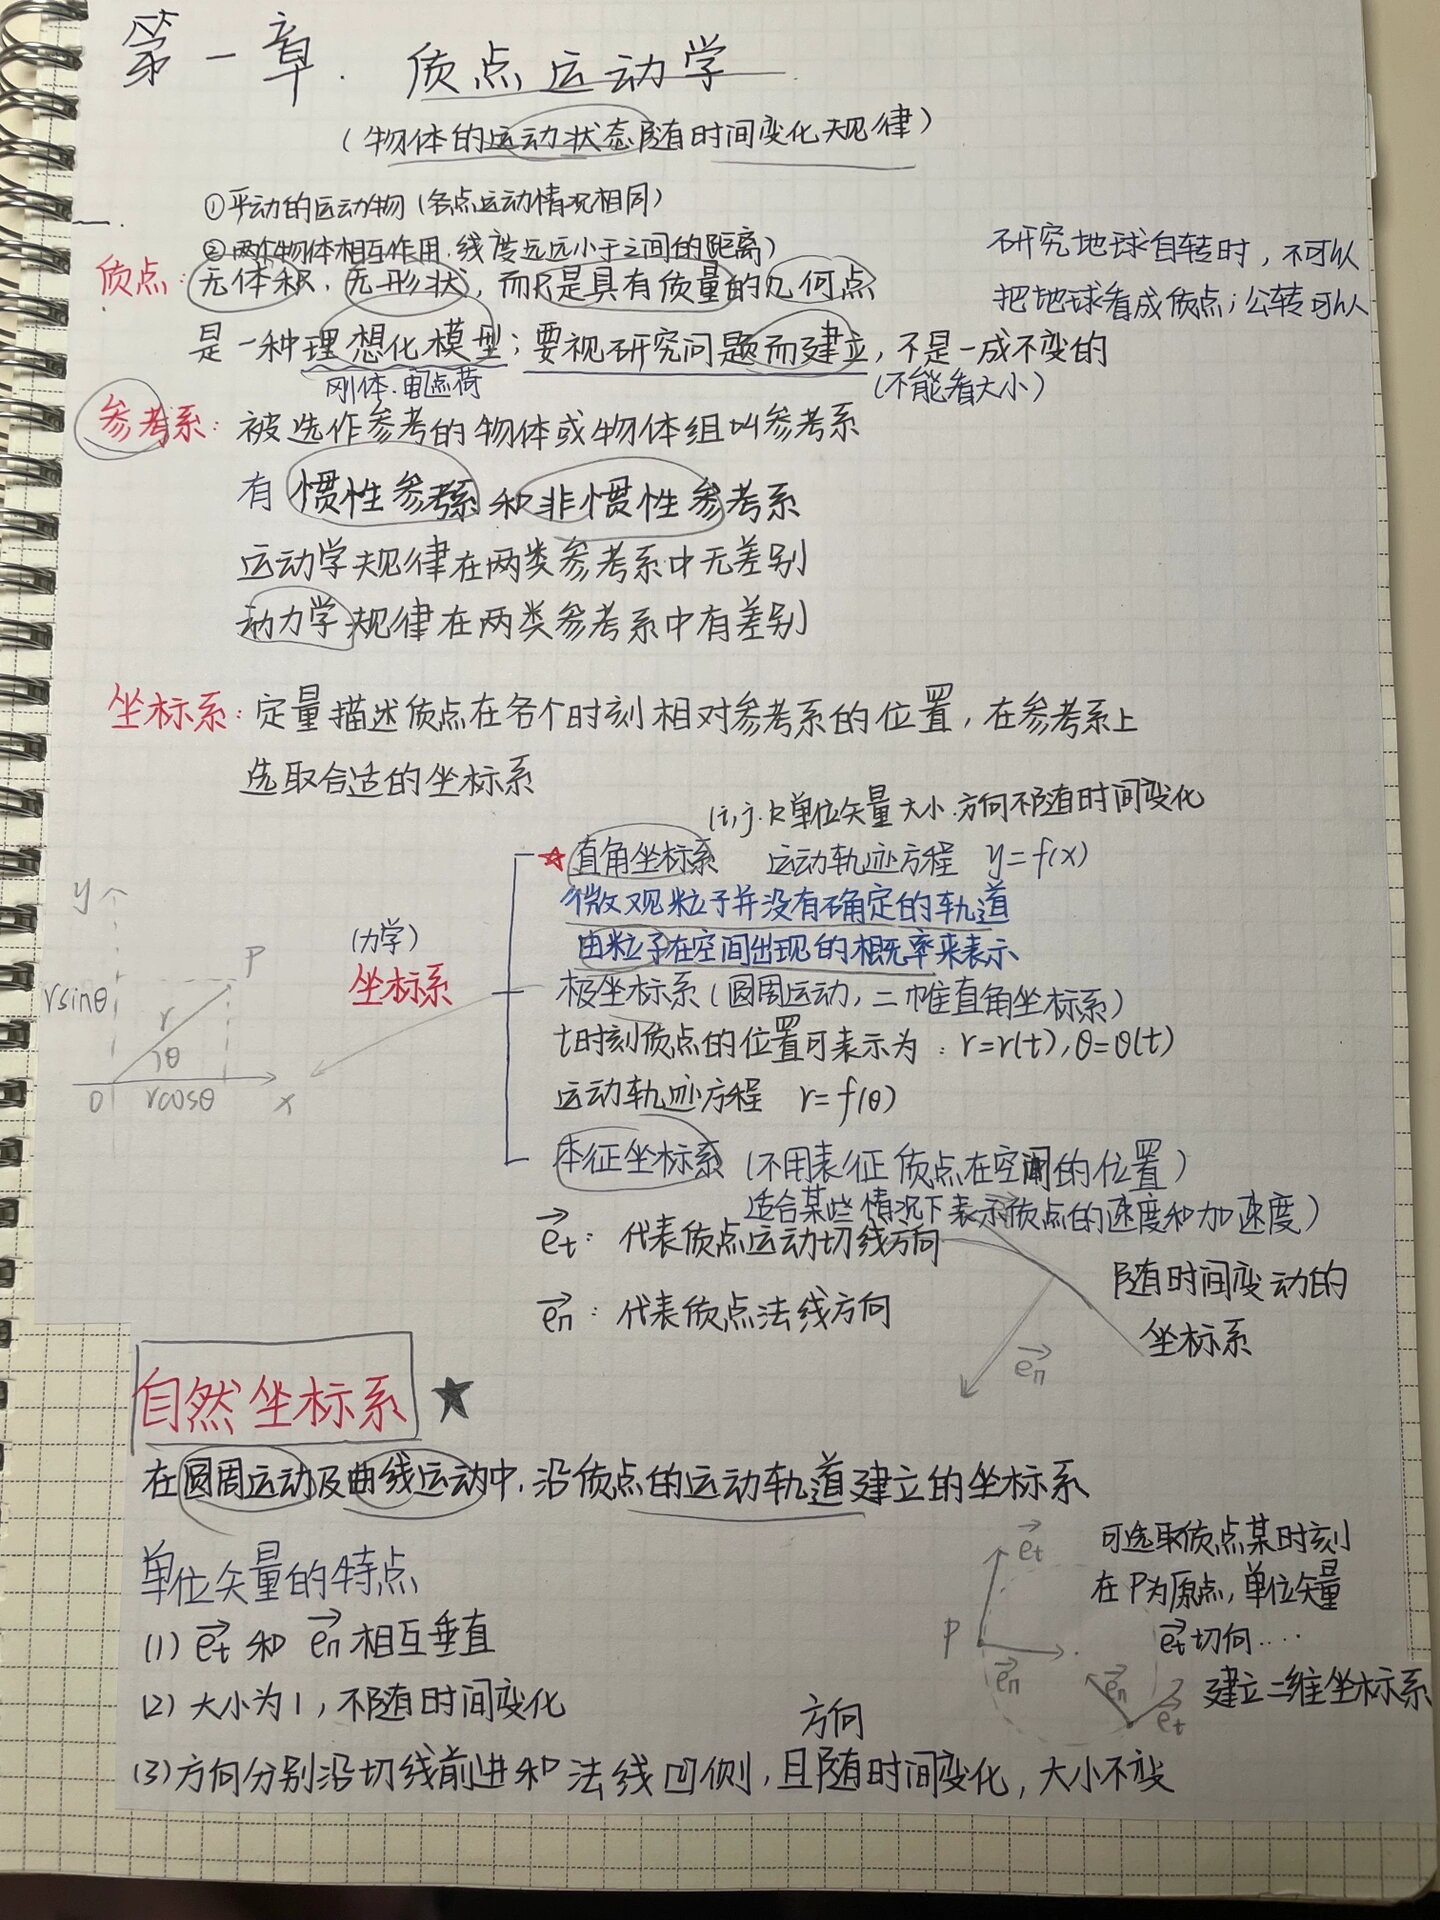 第一章. 质点运动学
(物体的运动状态随时间变化规律)
①平动的运动物(各点运动情况相同)
②两个物体相互作用.线度远远小于之间的距离)
质点: 无体积、无形状, 而只是具有质量的几何点
研究地球自转时, 不可以
把地球看成质点; 公转可以
是一种理想化模型; 要视研究问题而建立, 不是一成不变的
刚体. 电点荷
(不能看大小)
参考系: 被选作参考的物体或物体组叫参考系
有惯性参考系和非惯性参考系
运动学规律在两类参考系中无差别
动力学规律在两类参考系中有差别
坐标系: 定量描述质点在各个时刻相对参考系的位置, 在参考系上
选取合适的坐标系
(i,j.k单位矢量大小.方向不随时间变化
☆直角坐标系 运动轨迹方程 y=f(x)
微观粒子并没有确定的轨道
由粒子在空间出现的概率来表示
(力学)
坐标系
极坐标系(圆周运动, 二帷直角坐标系)
t时刻质点的位置可表示为: r=r(t), θ=θ(t)
运动轨迹方程 r=f(θ)
y
P
rsinθ
r
θ
0
rcosθ
x
本征坐标系 (不用表征质点在空间的位置)
适合某些情况下表示质点的速度和加速度)
e⃗t: 代表质点运动切线方向
e⃗n: 代表质点法线方向
随时间变动的
坐标系
e⃗n
自然坐标系 ★
在圆周运动及曲线运动中, 沿质点的运动轨道建立的坐标系
单位矢量的特点
(1) e⃗t 和 e⃗n 相互垂直
(2) 大小为1, 不随时间变化
方向
(3)方向分别沿切线前进和法线凹侧, 且随时间变化, 大小不变
e⃗t
P
e⃗n
e⃗n
e⃗t
可选取质点某时刻
在P为原点, 单位矢量
e⃗t切向····
建立二维坐标系